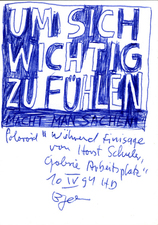 UM SICH
WICHTIG
ZU FÜHLEN
MACHT MAN SACHEN
Polaroid "Während Finissage
von Horst Schuler,
Galerie Arbeitsplatz"
10 IV 94 HD